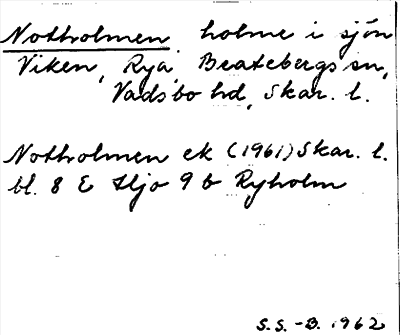 Notholmen. holme i sjön
Viken, Rya, Beatebergs sn,
Vadsbo hd, Skar. l.
Notholmen ek (1961) Skar. l.
bl. 8 E Hjo 9 b Ryholm
S.S.-B. 1962